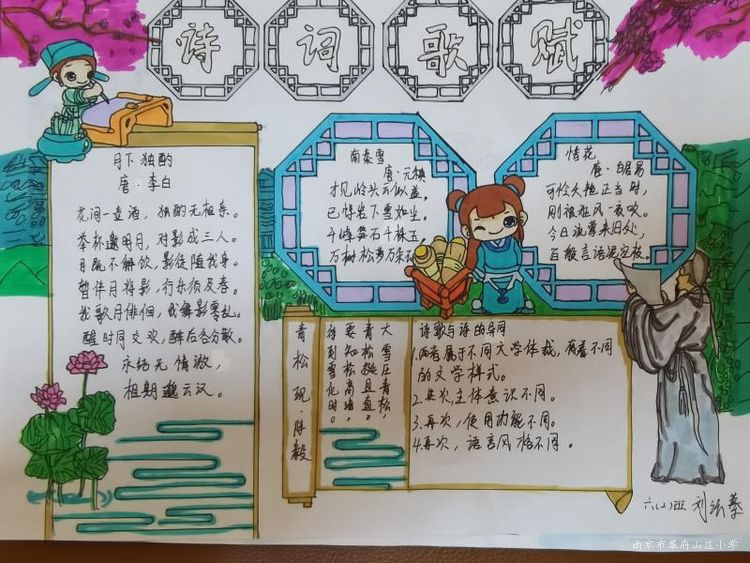 诗词歌赋
月下独酌
唐·李白
花间一壶酒，独酌无相亲。
举杯邀明月，对影成三人。
月既不解饮，影徒随我身。
暂伴月将影，行乐须及春。
我歌月徘徊，我舞影零乱。
醒时同交欢，醉后各分散。
永结无情游，
相期邈云汉。
南秦雪
唐·元稹
才见岭头云似盖，
已惊岩下雪如尘。
千峰笋石千株玉，
万树松萝万朵
惜花
唐·白居易
可怜夭艳正当时，
刚被狂风一夜吹。
今日流莺来旧处，
百般言语泥空枝。
青松 陈毅
大雪压青松，
青松挺且直。
要知松高洁，
待到雪化时。
诗歌与诗的异同
1.两者属于不同文学体裁，有着不同
的文学样式。
2.其次主体意识不同。
3.再次，使用功能不同。
4.再次，语言风格不同。
六(2)班 刘
南京市 府山庄小学